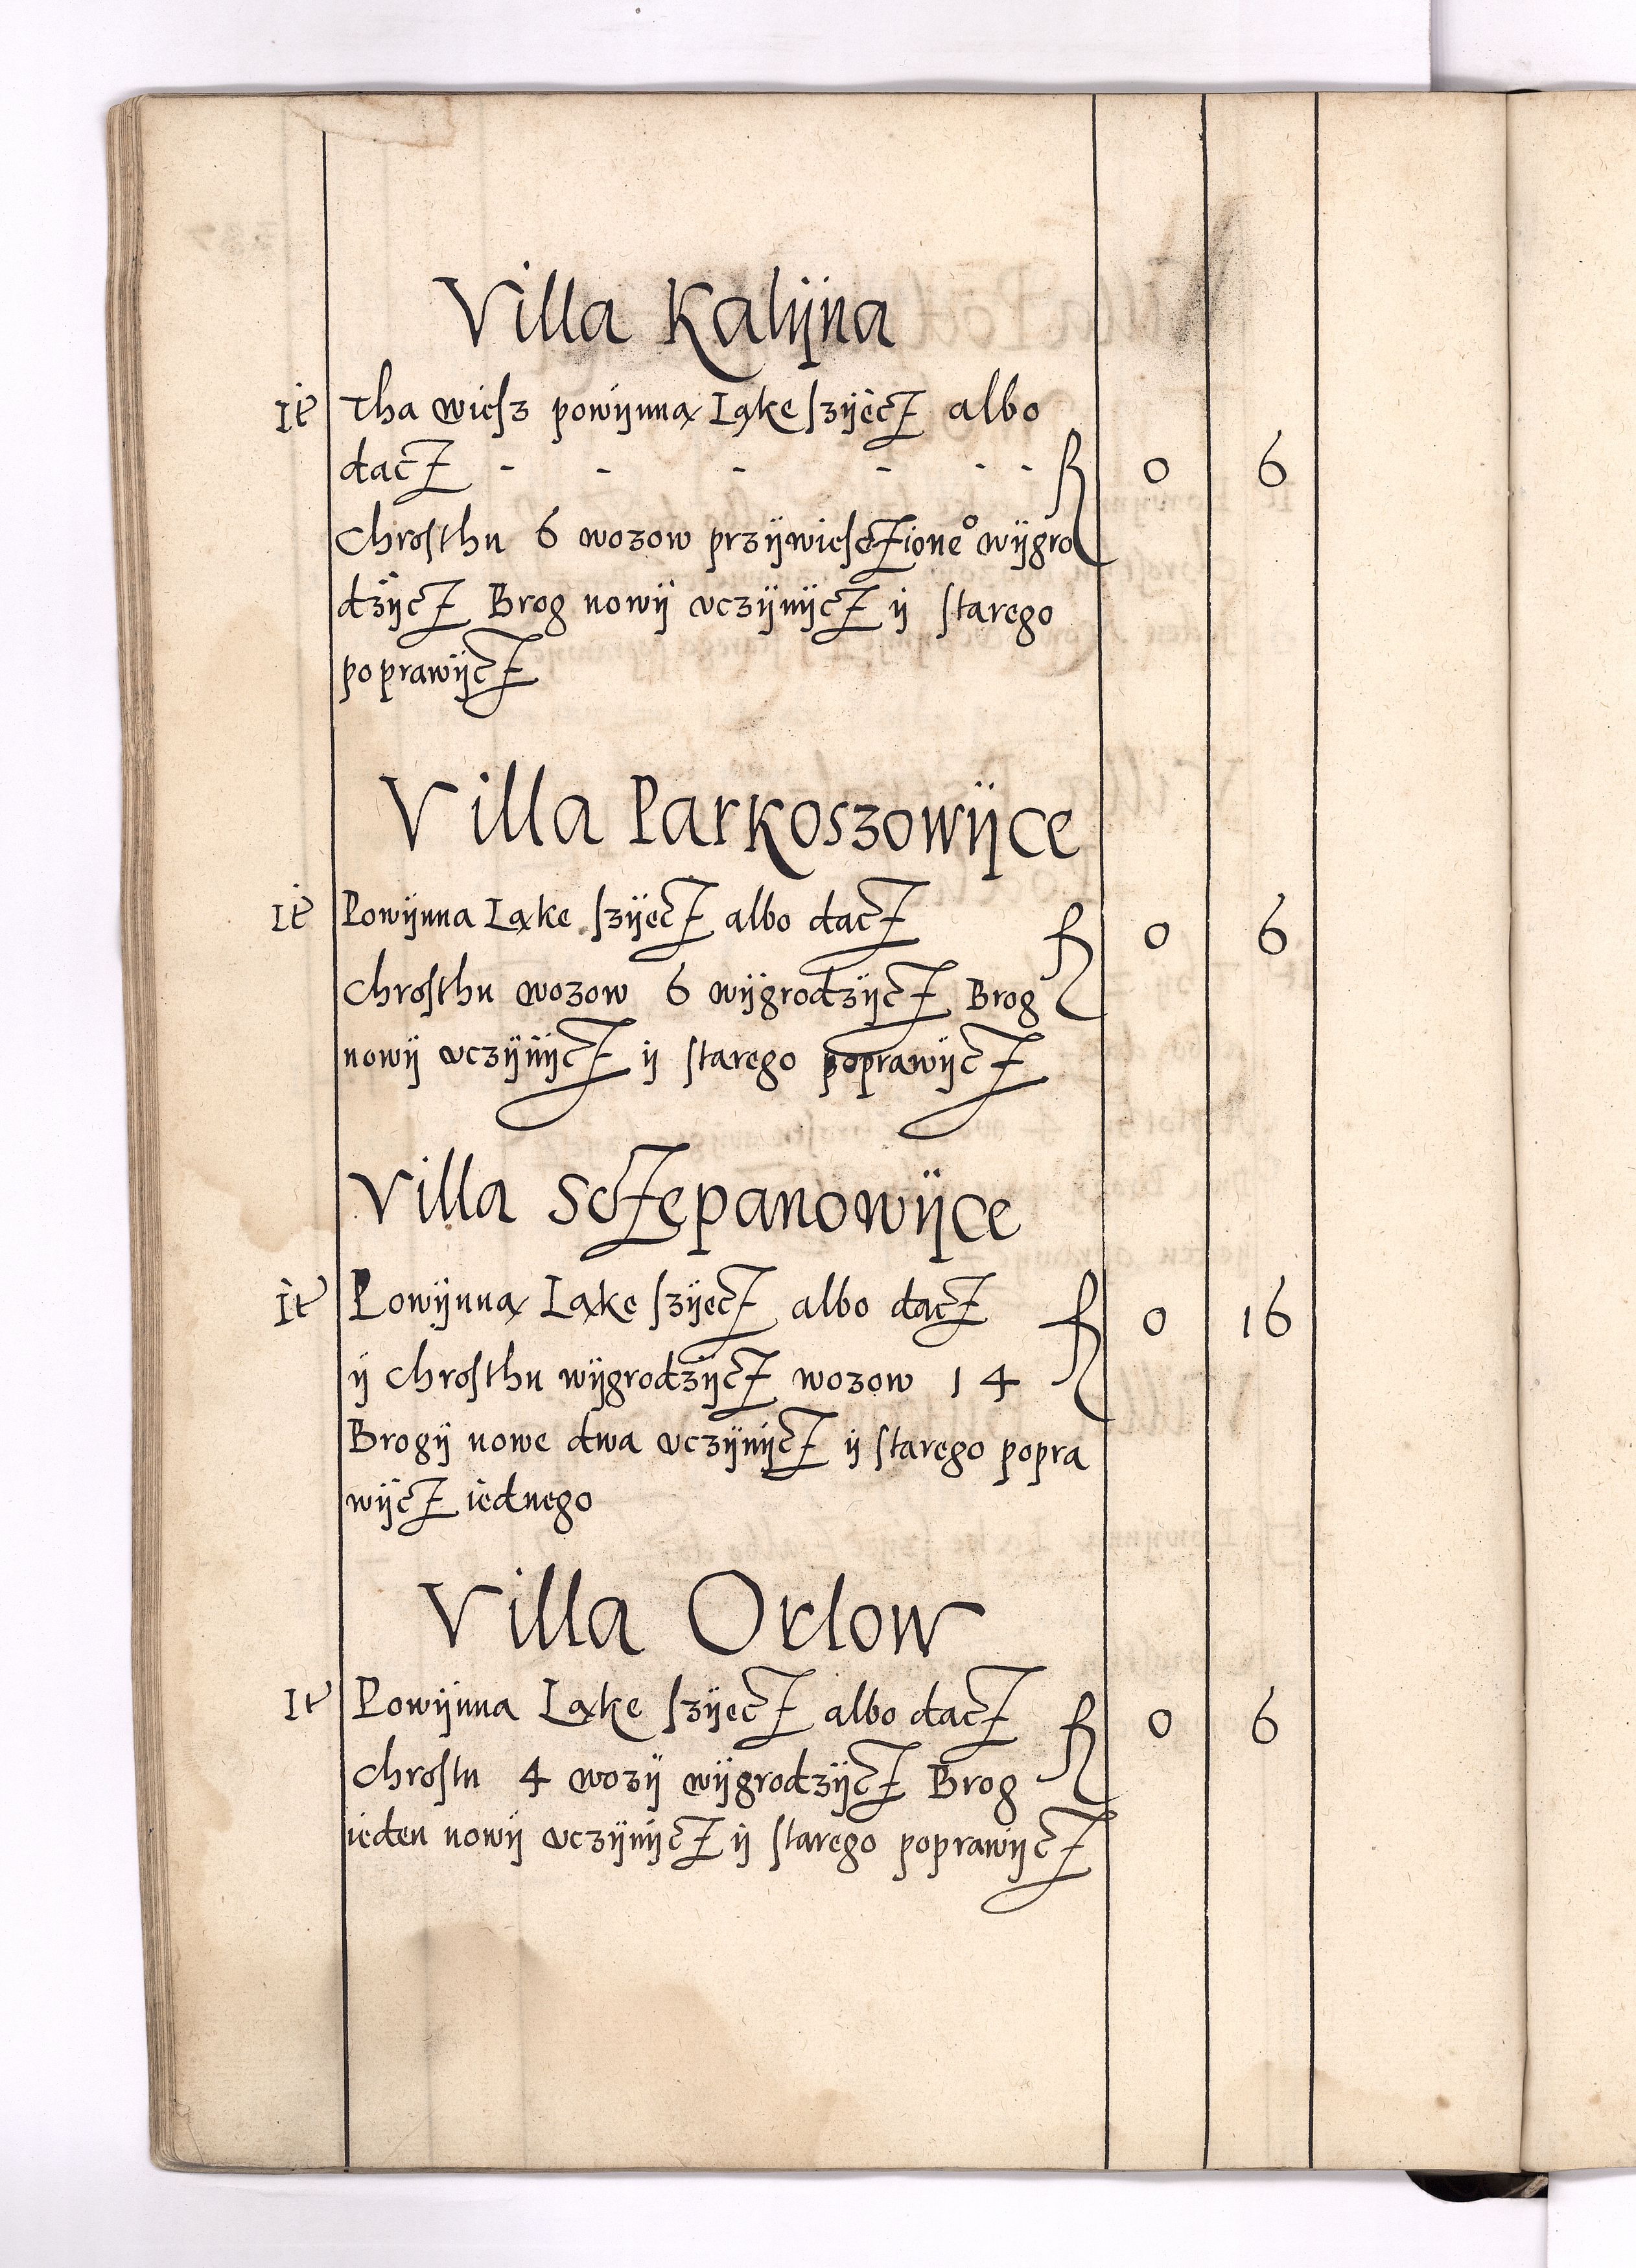 Villa Kalijna
It Tha wiesz powijnna Ląke szijecz albo
dacz - - - - - - f 0 6
Chrosthu 6 wozow przijwiesczione° wijgro
dzijcz Brog nowij vczijnijcz ij starego
poprawijcz
Villa Parkoszowijce
It Powijnna Ląke szijecz albo dacz f 0 6
Chrosthu wozow 6 wijgrodzijcz Brog
nowij vczijnijcz ij starego poprawijcz
Villa Sczepanowijce
It Powijnna Ląke szijecz albo dacz f 0 16
ij Chrosthu wijgrodzijcz wozow 14
Brogij nowe dwa vczijnijcz ij starego popra
wijcz iednego
Villa Orlow
It Powijnna Ląke szijecz albo dacz f 0 6
Chrostu 4 wozij wijgrodzijcz Brog
ieden nowij vczijnijcz ij starego poprawijcz